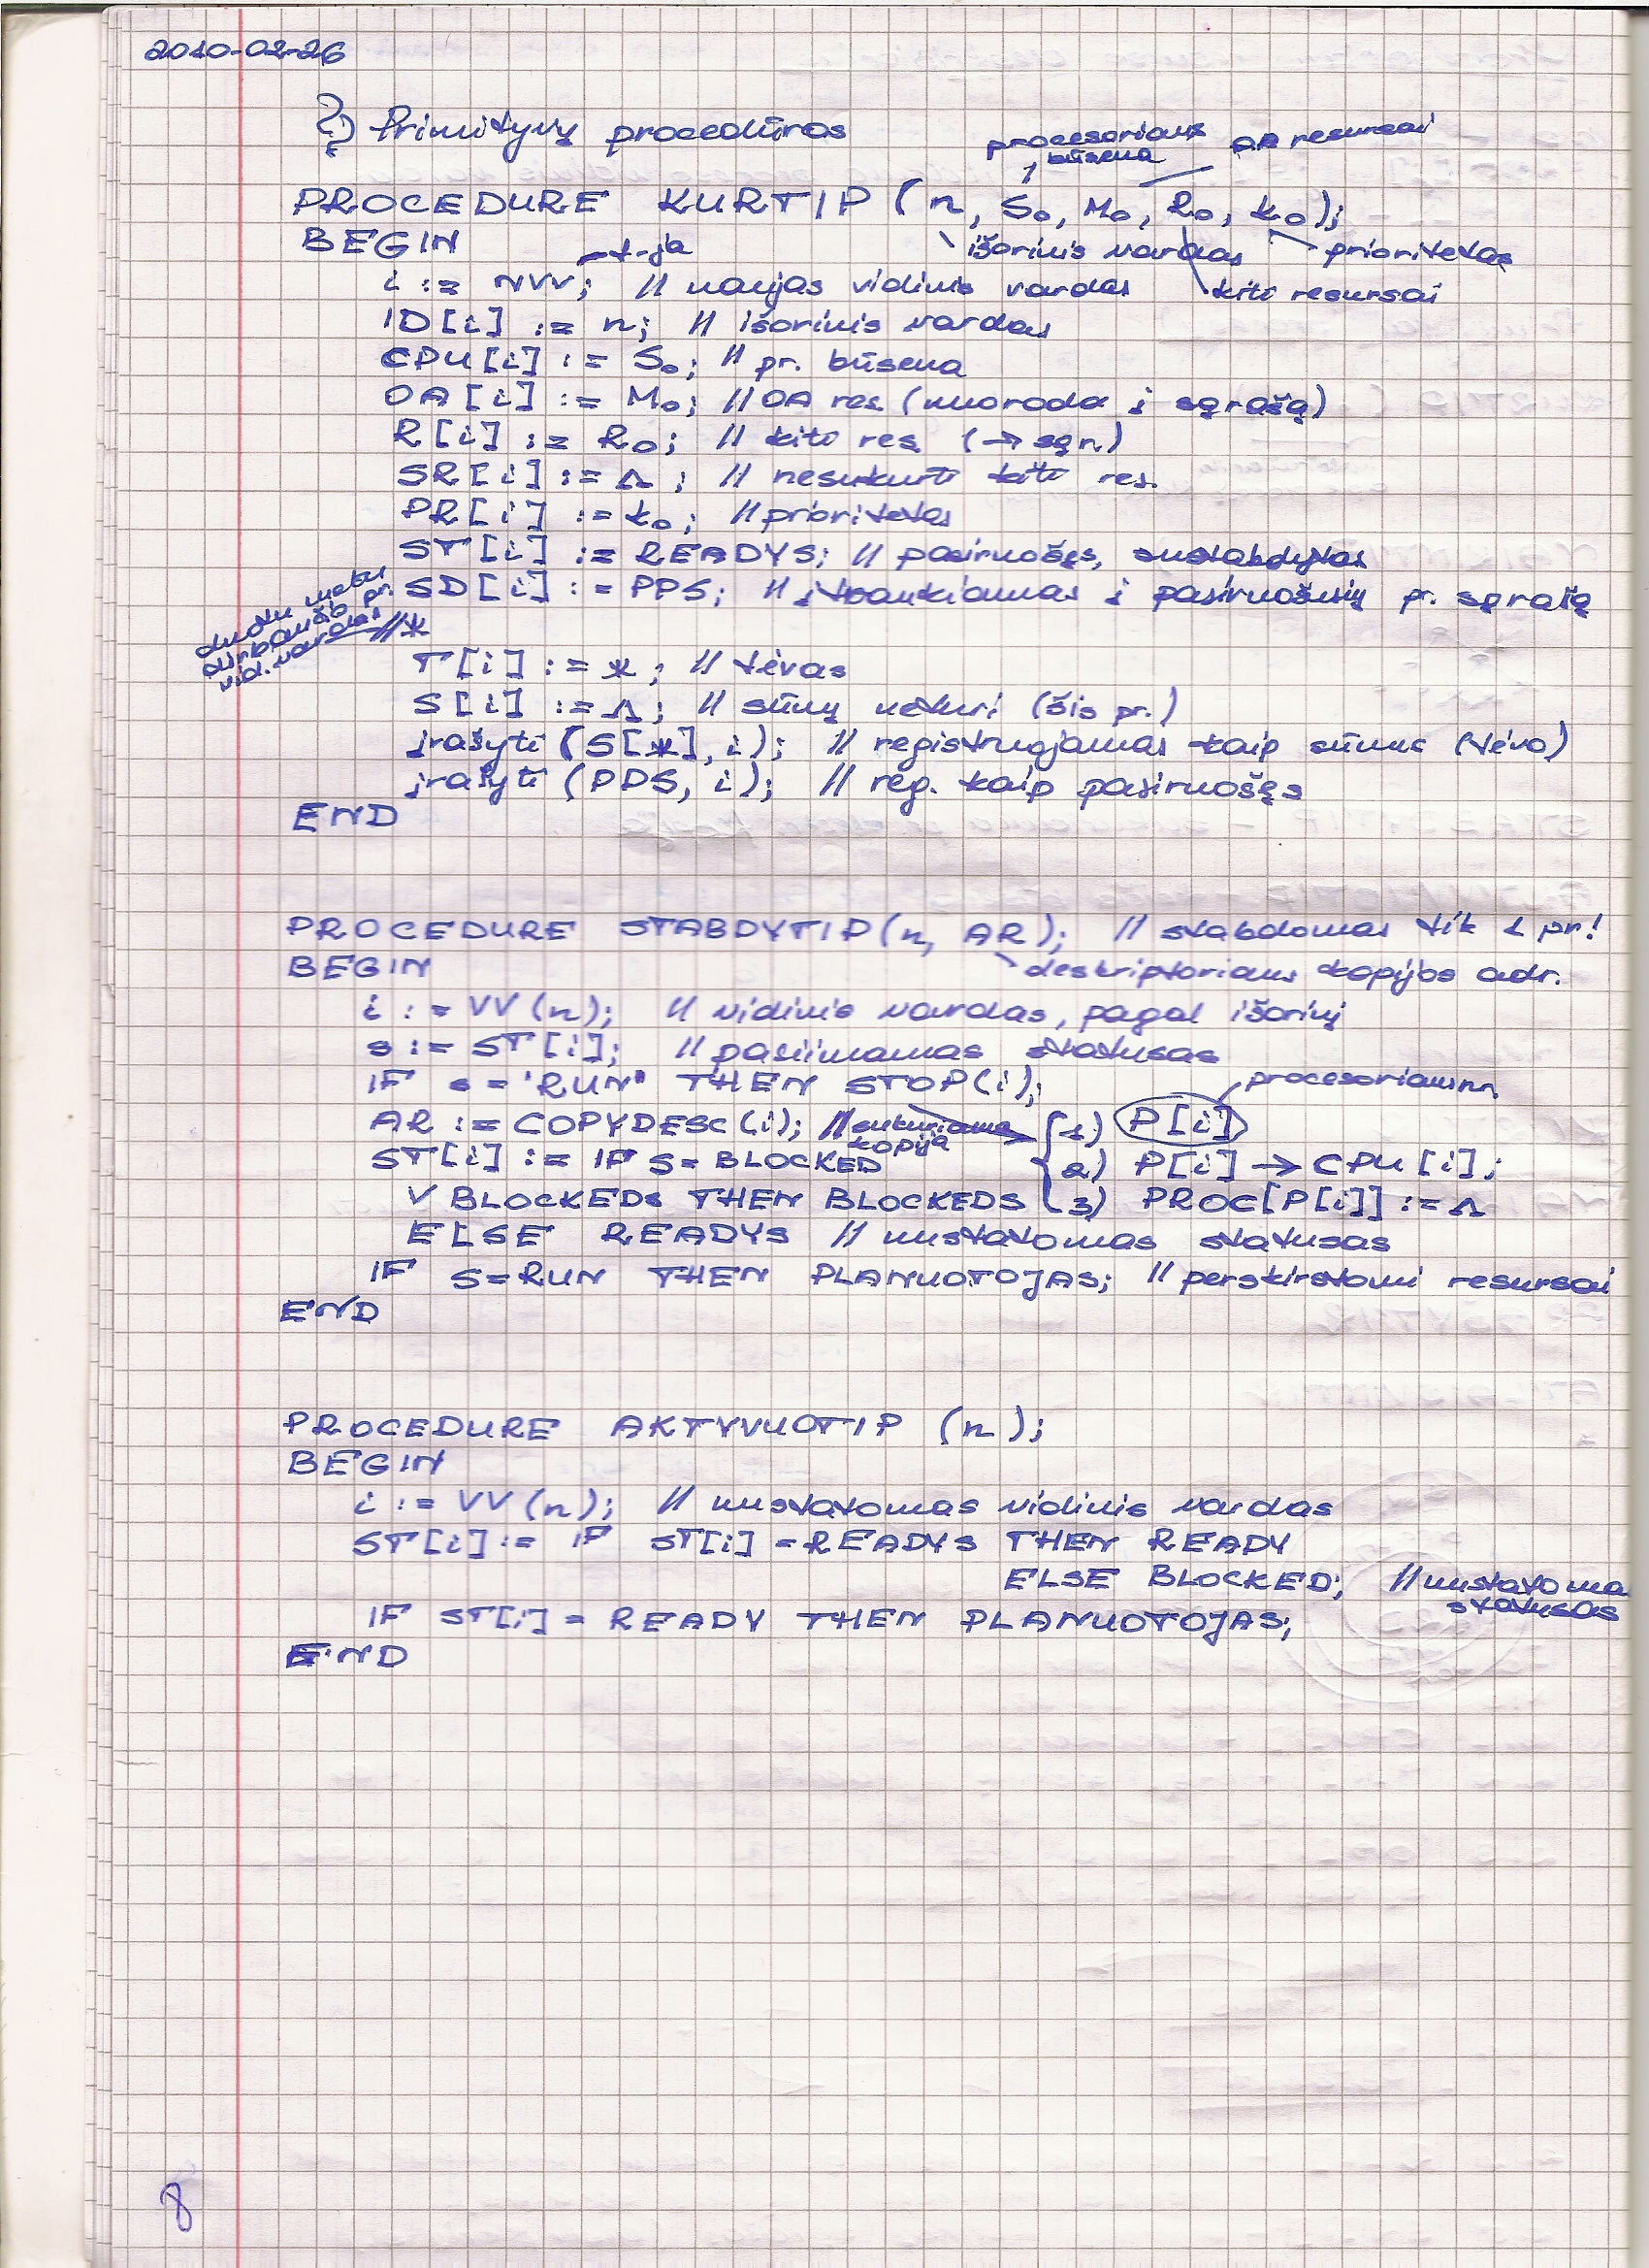 2010-02-26
?) Primityvų procedūros
procesoriaus būsena
OA resursai
PROCEDURE KURTIP (n, S₀, M₀, R₀, k₀);
BEGIN
f-ja
išorinis vardas
prioritetas
kiti resursai
i := NVV; // naujas vidinis vardas
ID[i] := n; // išorinis vardas
CPU[i] := S₀; // pr. būsena
OA[i] := M₀; // OA res. (nuoroda į sąrašą)
R[i] := R₀; // kiti res. (→ sąr.)
SR[i] := Λ; // nesukurti kiti res.
PR[i] := k₀; // prioritetas
ST[i] := READYS; // pasiruošęs, sustabdytas
SD[i] := PPS; // įtraukiamas į pasiruošusių pr. sąrašą
duotu metu
dirbančio pr.
vid. vardas //*
T[i] := *; // tėvas
S[i] := Λ; // sūnų neturi (šis pr.)
įrašyti (S[*], i); // registruojamas kaip sūnus (tėvo)
įrašyti (PDS, i); // reg. kaip pasiruošęs
END
PROCEDURE STABDYTIP (n, AR); // stabdomas tik 1 pr!
BEGIN
deskriptoriaus kopijos adr.
i := VV(n); // vidinis vardas, pagal išorinį
s := ST[i]; // pasiimamas statusas
IF s = 'RUN' THEN STOP(i);
procesoriaus nr.
AR := COPYDESC(i); // sukuriama kopija
1) P[i]
ST[i] := IF S = BLOCKED
2) P[i] → CPU[i];
V BLOCKEDS THEN BLOCKEDS
3) PROC[P[i]] := Λ
ELSE READYS // nustatomas statusas
IF S=RUN THEN PLANUOTOJAS; // perskirstomi resursai
END
PROCEDURE AKTYVUOTIP (n);
BEGIN
i := VV(n); // nustatomas vidinis vardas
ST[i] := IF ST[i] = READYS THEN READY
ELSE BLOCKED; // nustatoma
statusas
IF ST[i] = READY THEN PLANUOTOJAS;
END
8